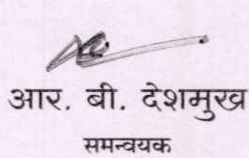 आर. बी. देशमुख
समन्वयक